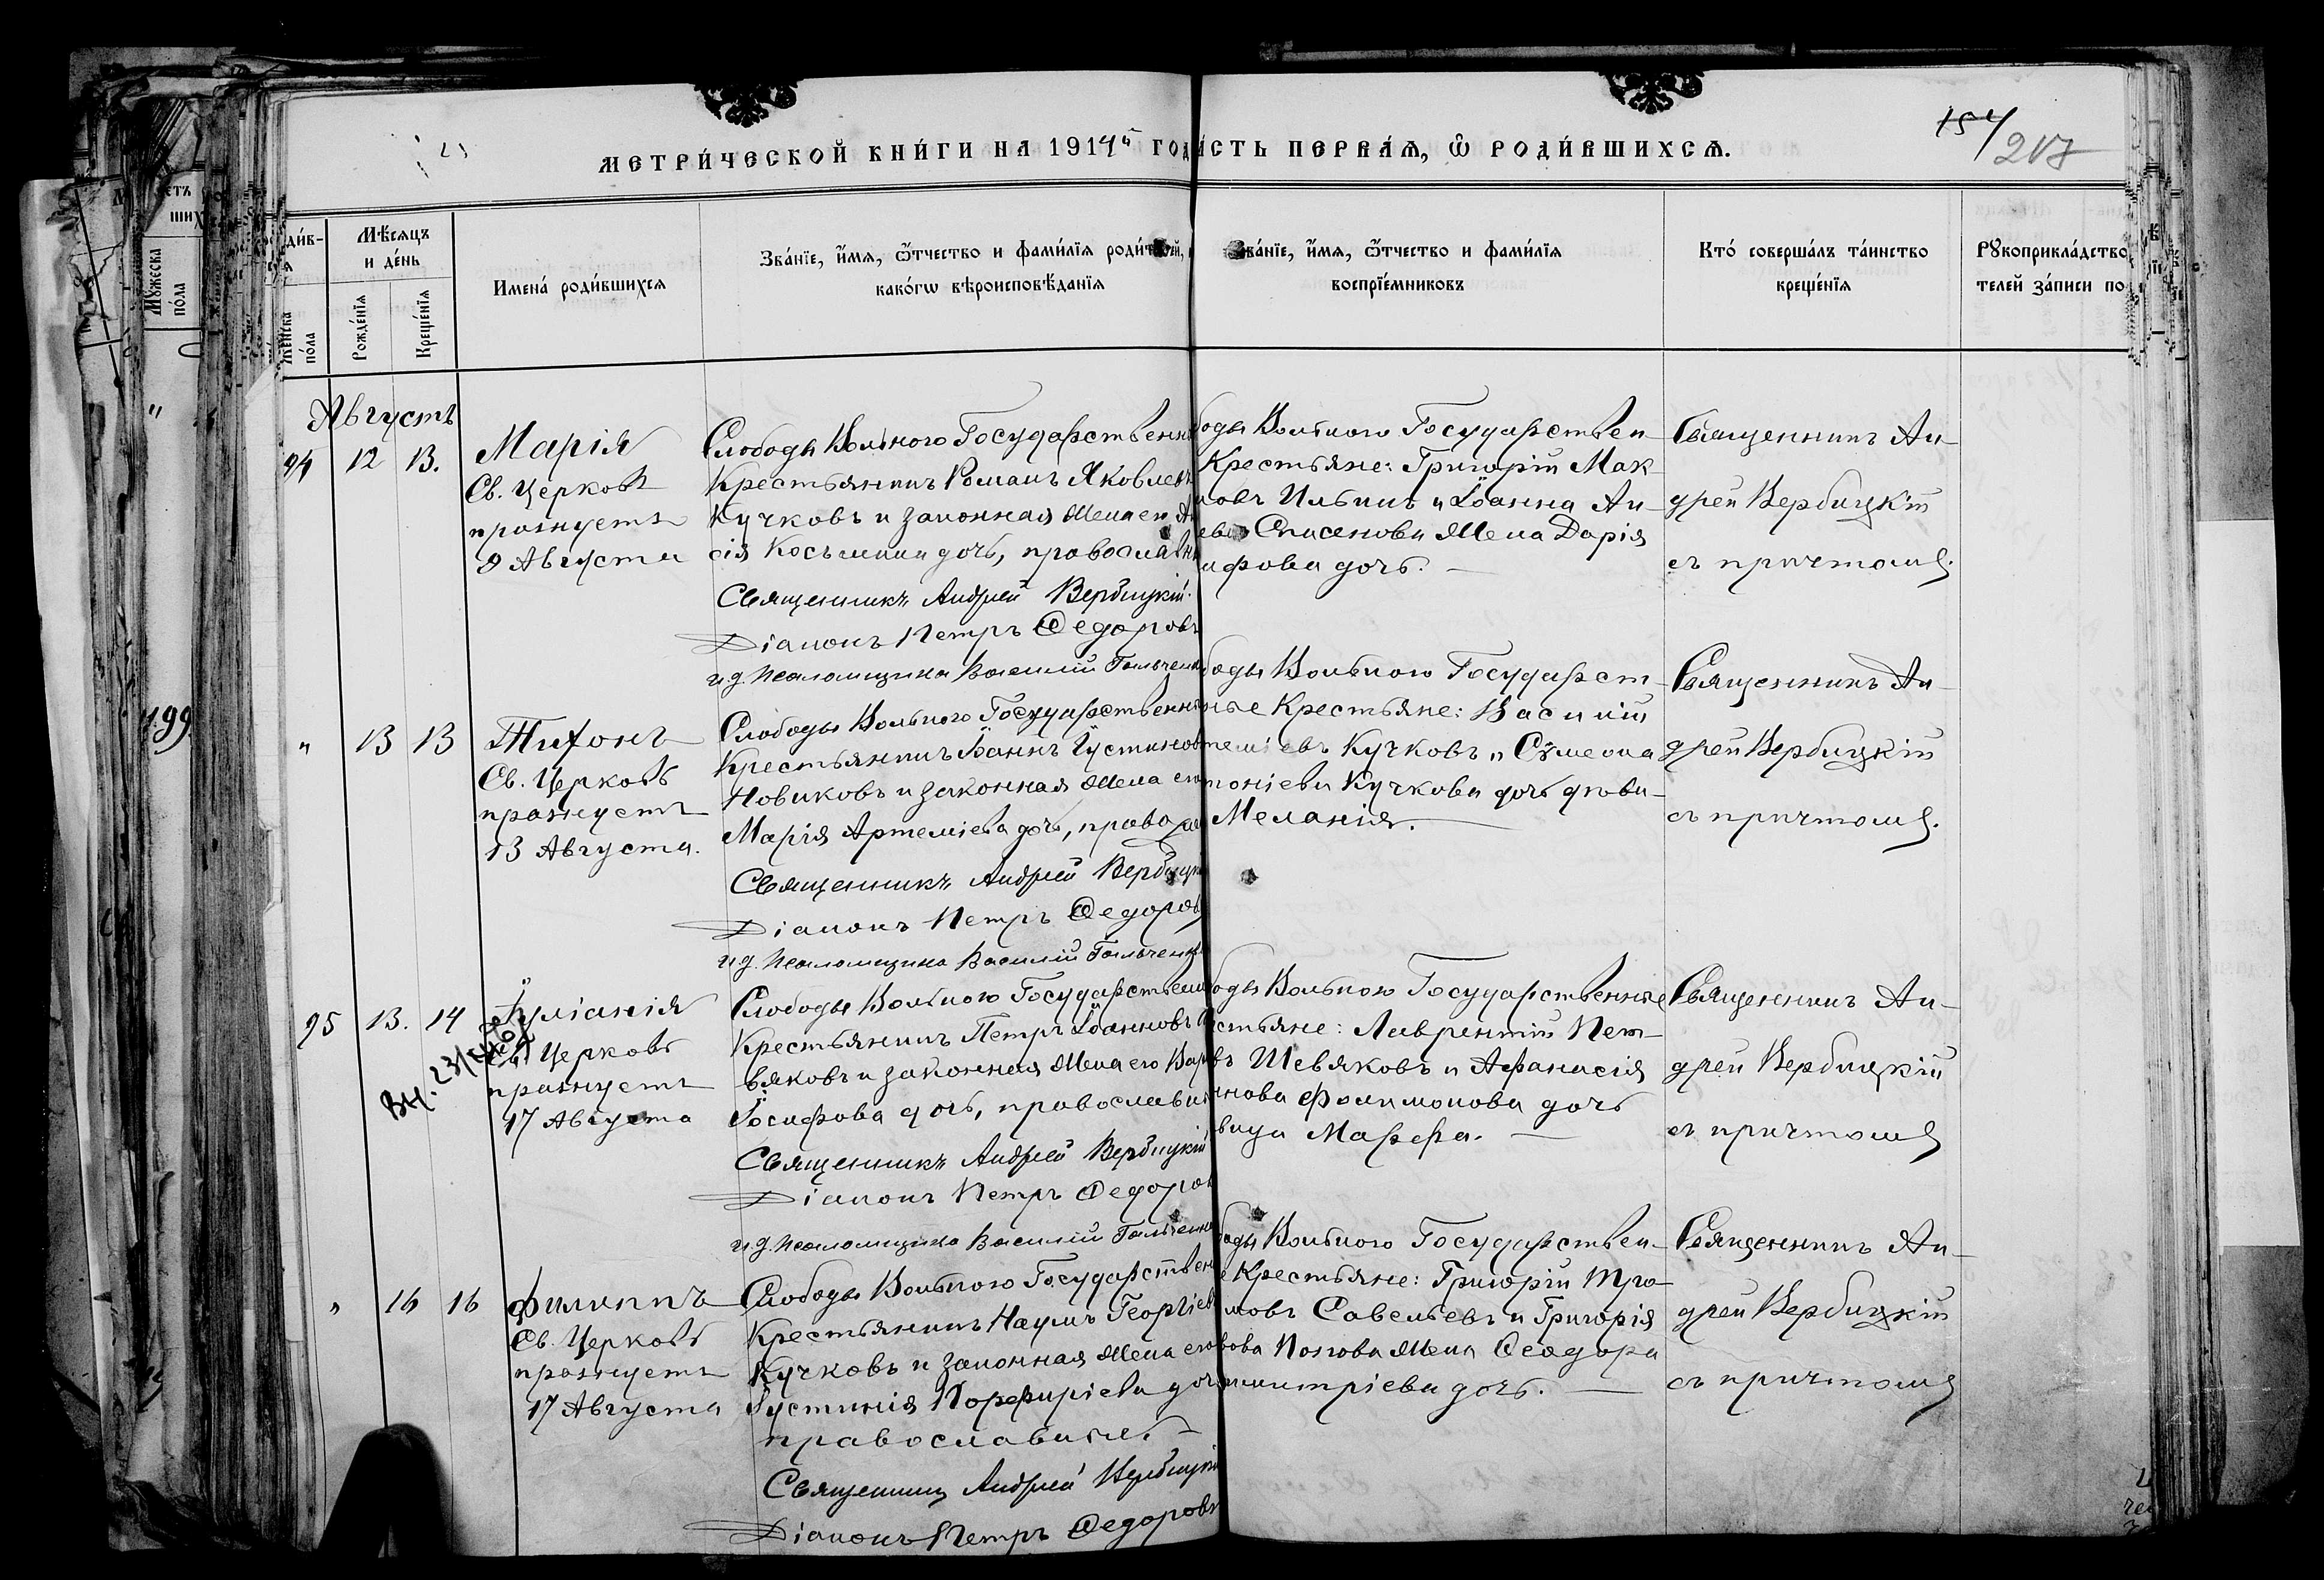 МЕТРИ́ЧЕСКОЙ КНИ́ГИ НА 1914й ГОД
А́СТЬ ПЕРВА́Я, Ѡ҆ РОДИ́ВШИХСЯ.
154/217
Мѣ́сяцъ и де́нь
Же́нска по́ла
Рожде́нїя
Креще́нїя
Имена̀ роди́вшихся
Зва́нїе, и҆́мя, ѻ҆́тчество и фами́лїя роди́телей,
како́гѡ вѣроисповѣ́данїя
Зва́нїе, и҆́мя, ѻ҆́тчество и фами́лїя
воспрїе́мниковъ
Кто̀ соверша́лъ та́инство
креще́нїя
Рꙋкоприкла́дство
телей за́писи по
Мꙋ́жеска по́ла
Августъ
94 12 13.
Марія
Св. Церковь
празнуетъ
9 Августа
Слободы Вольного Государственн
Крестьянинъ Романъ Яковлевъ
Кучковъ и законная жена его
сія Косьмина дочь, православн
Священникъ Андрей Вербицкій.
Діаконъ Петръ Ѳедоровъ
и.д. псаломщика Василій Гальченк
боды Вольного Государствен-
Крестьяне: Григорій Мак
мовъ Ильинъ и Іоанна Ан-
ева Спасенова жена Дарія
ифова дочь.
Священникъ Ан-
дрей Вербицкій
съ причтомъ.
199
" 13 13
Тихонъ
Св. Церковь
празнуетъ
13 Августа.
Слободы Вольного Государственн
Крестьянинъ Іоаннъ Іустинов
Новиковъ и законная жена его
Марія Артеміева дочь, право
Священникъ Андрей Вербицк
Діаконъ Петръ Ѳедоров
и.д. псаломщика Василій Гальченк
боды Вольного Государст-
ные Крестьяне: Василій
теміевъ Кучковъ и Сѵмеона
тоніева Кучкова дочь дѣви-
Меланія.
Священникъ Ан-
дрей Вербицкій
съ причтомъ.
95 13. 14
Іуліанія
Св. Церковь
празнуетъ
17 Августа
Слободы Вольного Государственн
Крестьянинъ Петръ Іоанновъ
вяковъ и законная жена его Вар
Іосифова дочь, православн
Священникъ Андрей Вербицкій
Діаконъ Петръ Ѳедоров
и.д. псаломщика Василій Гальченк
боды Вольного Государственные
стьяне: Лаврентій Пет-
въ Шевяковъ и Аѳанасія
нова Филимонова дочь
вица Марѳа.
Священникъ Ан-
дрей Вербицкій
съ причтомъ
" 16 16
Филиппъ
Св. Церковь
празнуетъ
17 Августа
Слободы Вольного Государствен
Крестьянинъ Наумъ Георгіев
Кучковъ и законная жена его
Іустинія Порфиріева доч
православные.
Священникъ Андрей Вербицкі
Діаконъ Петръ Ѳедоровъ
боды Вольного Государствен-
е Крестьяне: Григорій Тро-
мовъ Савельевъ и Григорія
вова Попова жена Ѳеодора
митріева дочь.
Священникъ Ан-
дрей Вербицкій
съ причтомъ